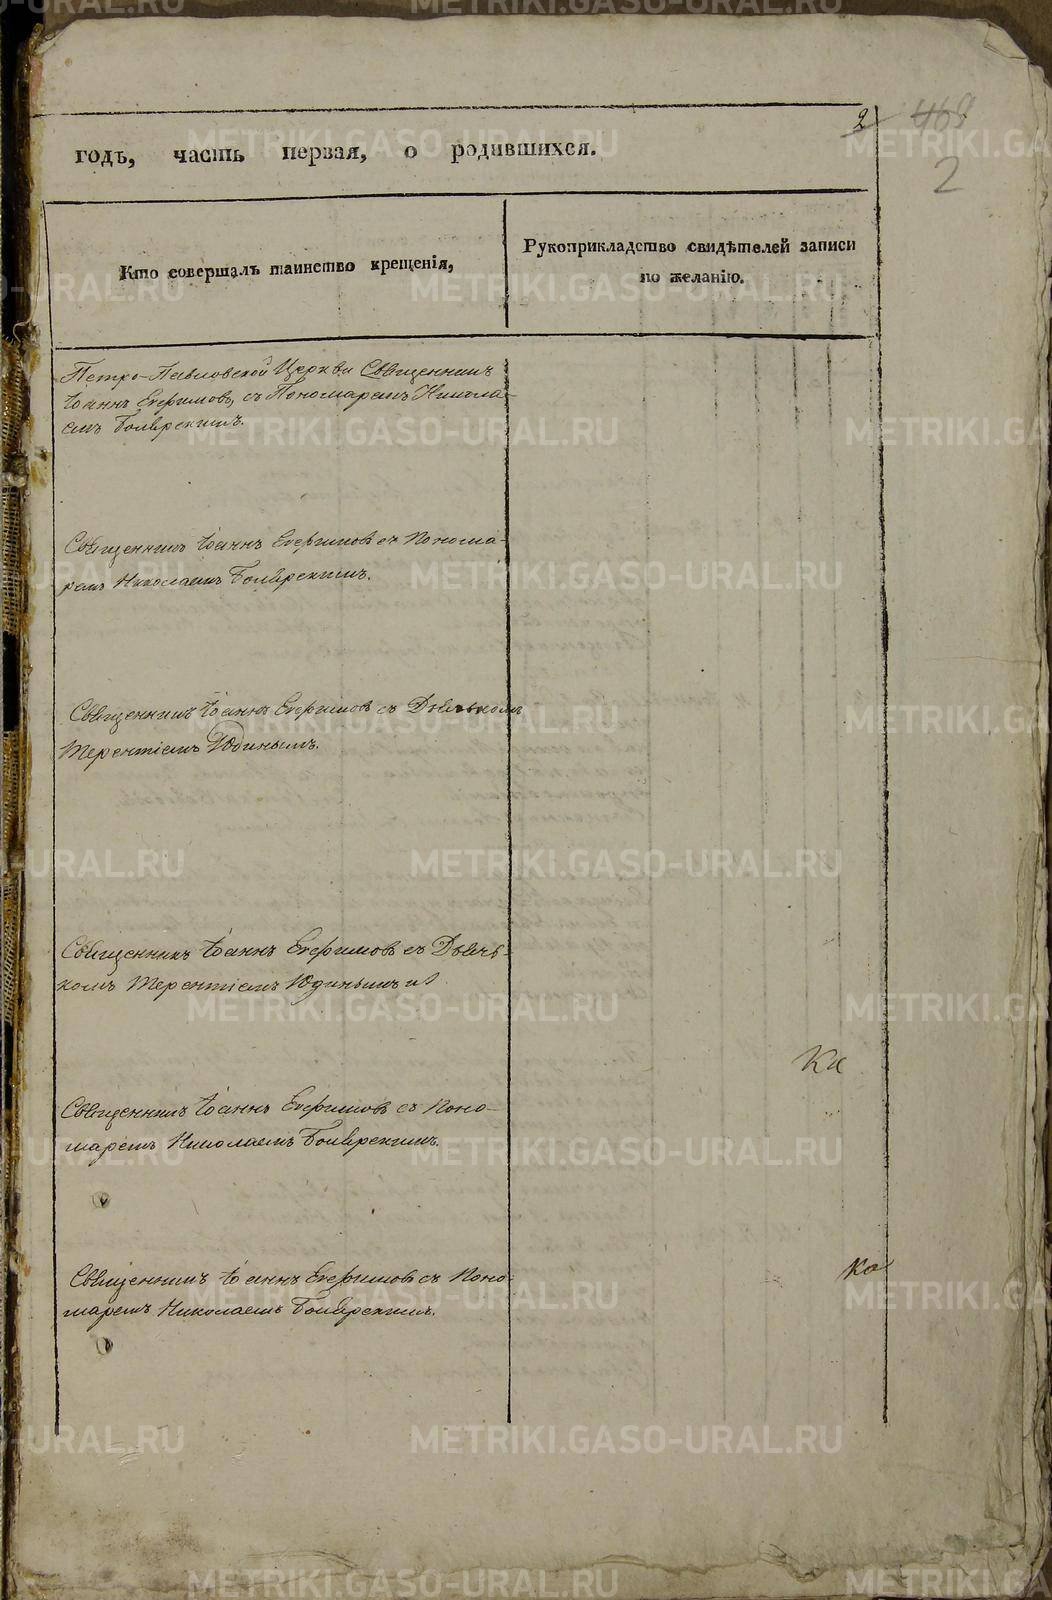 2
468
2
годъ, часть первая, о родившихся.
Кто совершалъ таинство крещенія,
Рукоприкладство свидѣтелей записи
по желанію.
Петро-Павловской Церкви Священникъ
Іоаннъ Ефимовъ, съ Пономаремъ Никола-
емъ
Священникъ Іоаннъ Ефимовъ съ Понома-
ремъ Николаемъ
Священникъ Іоаннъ Ефимовъ съ Дьячькомъ
Терентіемъ Юдинымъ.
Священникъ Іоаннъ Ефимовъ съ Дьячь-
комъ Терентіемъ Юдинымъ
Ка
Священникъ Іоаннъ Ефимовъ съ Поно-
маремъ Николаемъ
Священникъ Іоаннъ Ефимовъ съ Поно-
маремъ Николаемъ
Ка
METRIKI.GASO-URAL.RU